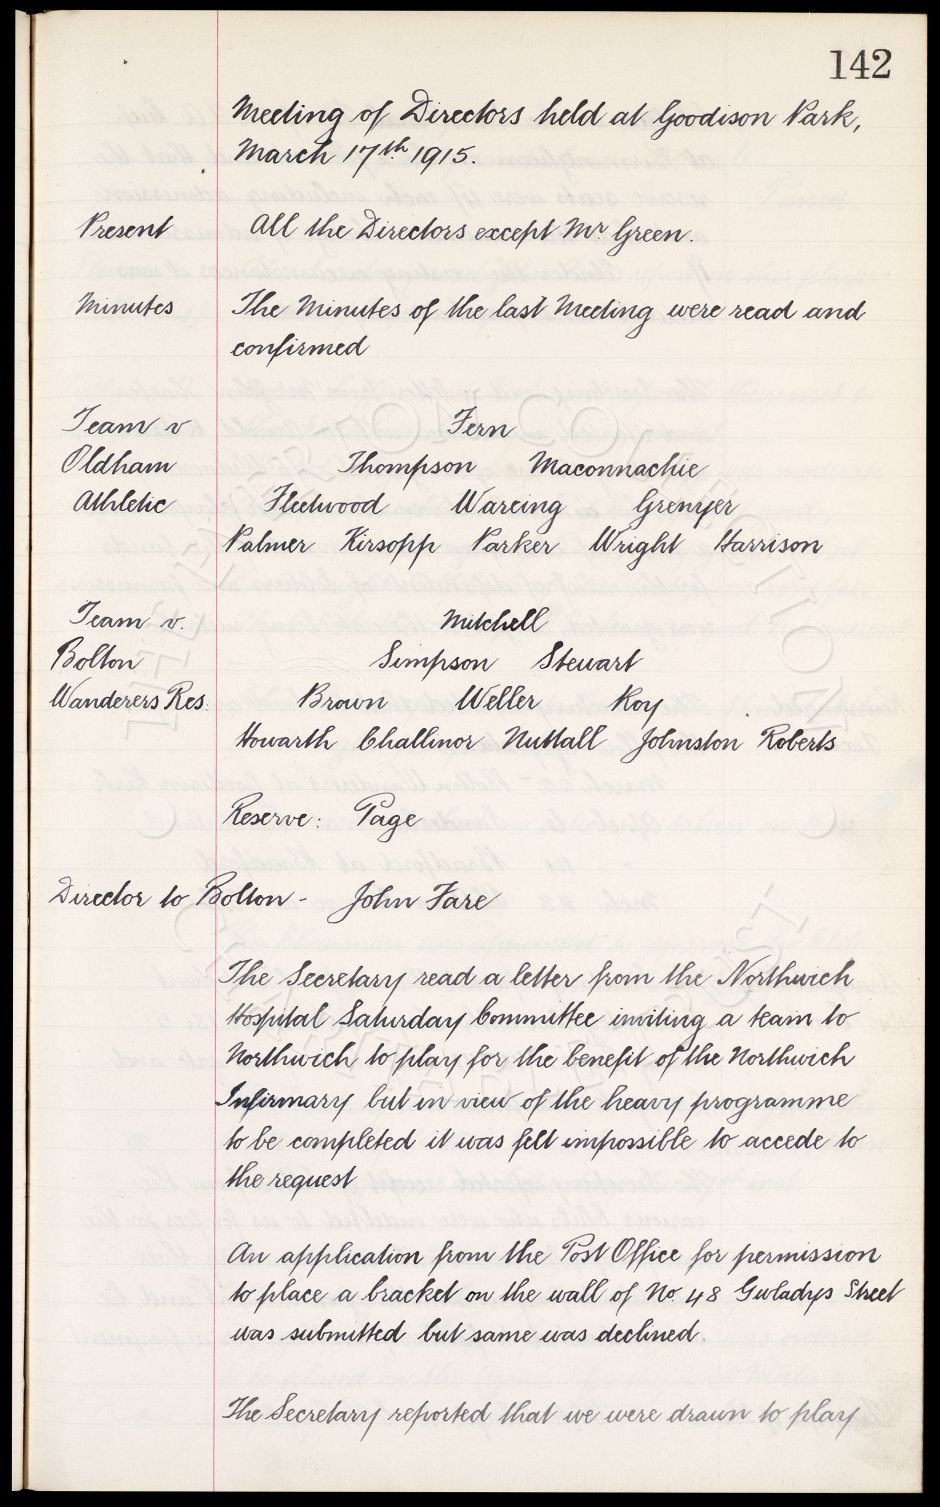 142
Meeting of Directors held at Goodison Park,
March 17th 1915.
Present All the Directors except Mr Green.
Minutes The Minutes of the last Meeting were read and
confirmed
Team v Fern
Oldham Thompson Maconnachie
Athletic Fleetwood Wareing Grenyer
Palmer Kirsopp Parker Wright Harrison
Team v. Mitchell
Bolton Simpson Stewart
Wanderers Res: Brown Weller Roy
Howarth Challinor Nuttall Johnston Roberts
Reserve: Page
Director to Bolton - John Fare
The Secretary read a letter from the Northwich
Hospital Saturday Committee inviting a team to
Northwich to play for the benefit of the Northwich
Infirmary but in view of the heavy programme
to be completed it was felt impossible to accede to
the request
An application from the Post Office for permission
to place a bracket on the wall of No 48 Gwladys Street
was submitted but same was declined.
The Secretary reported that we were drawn to play